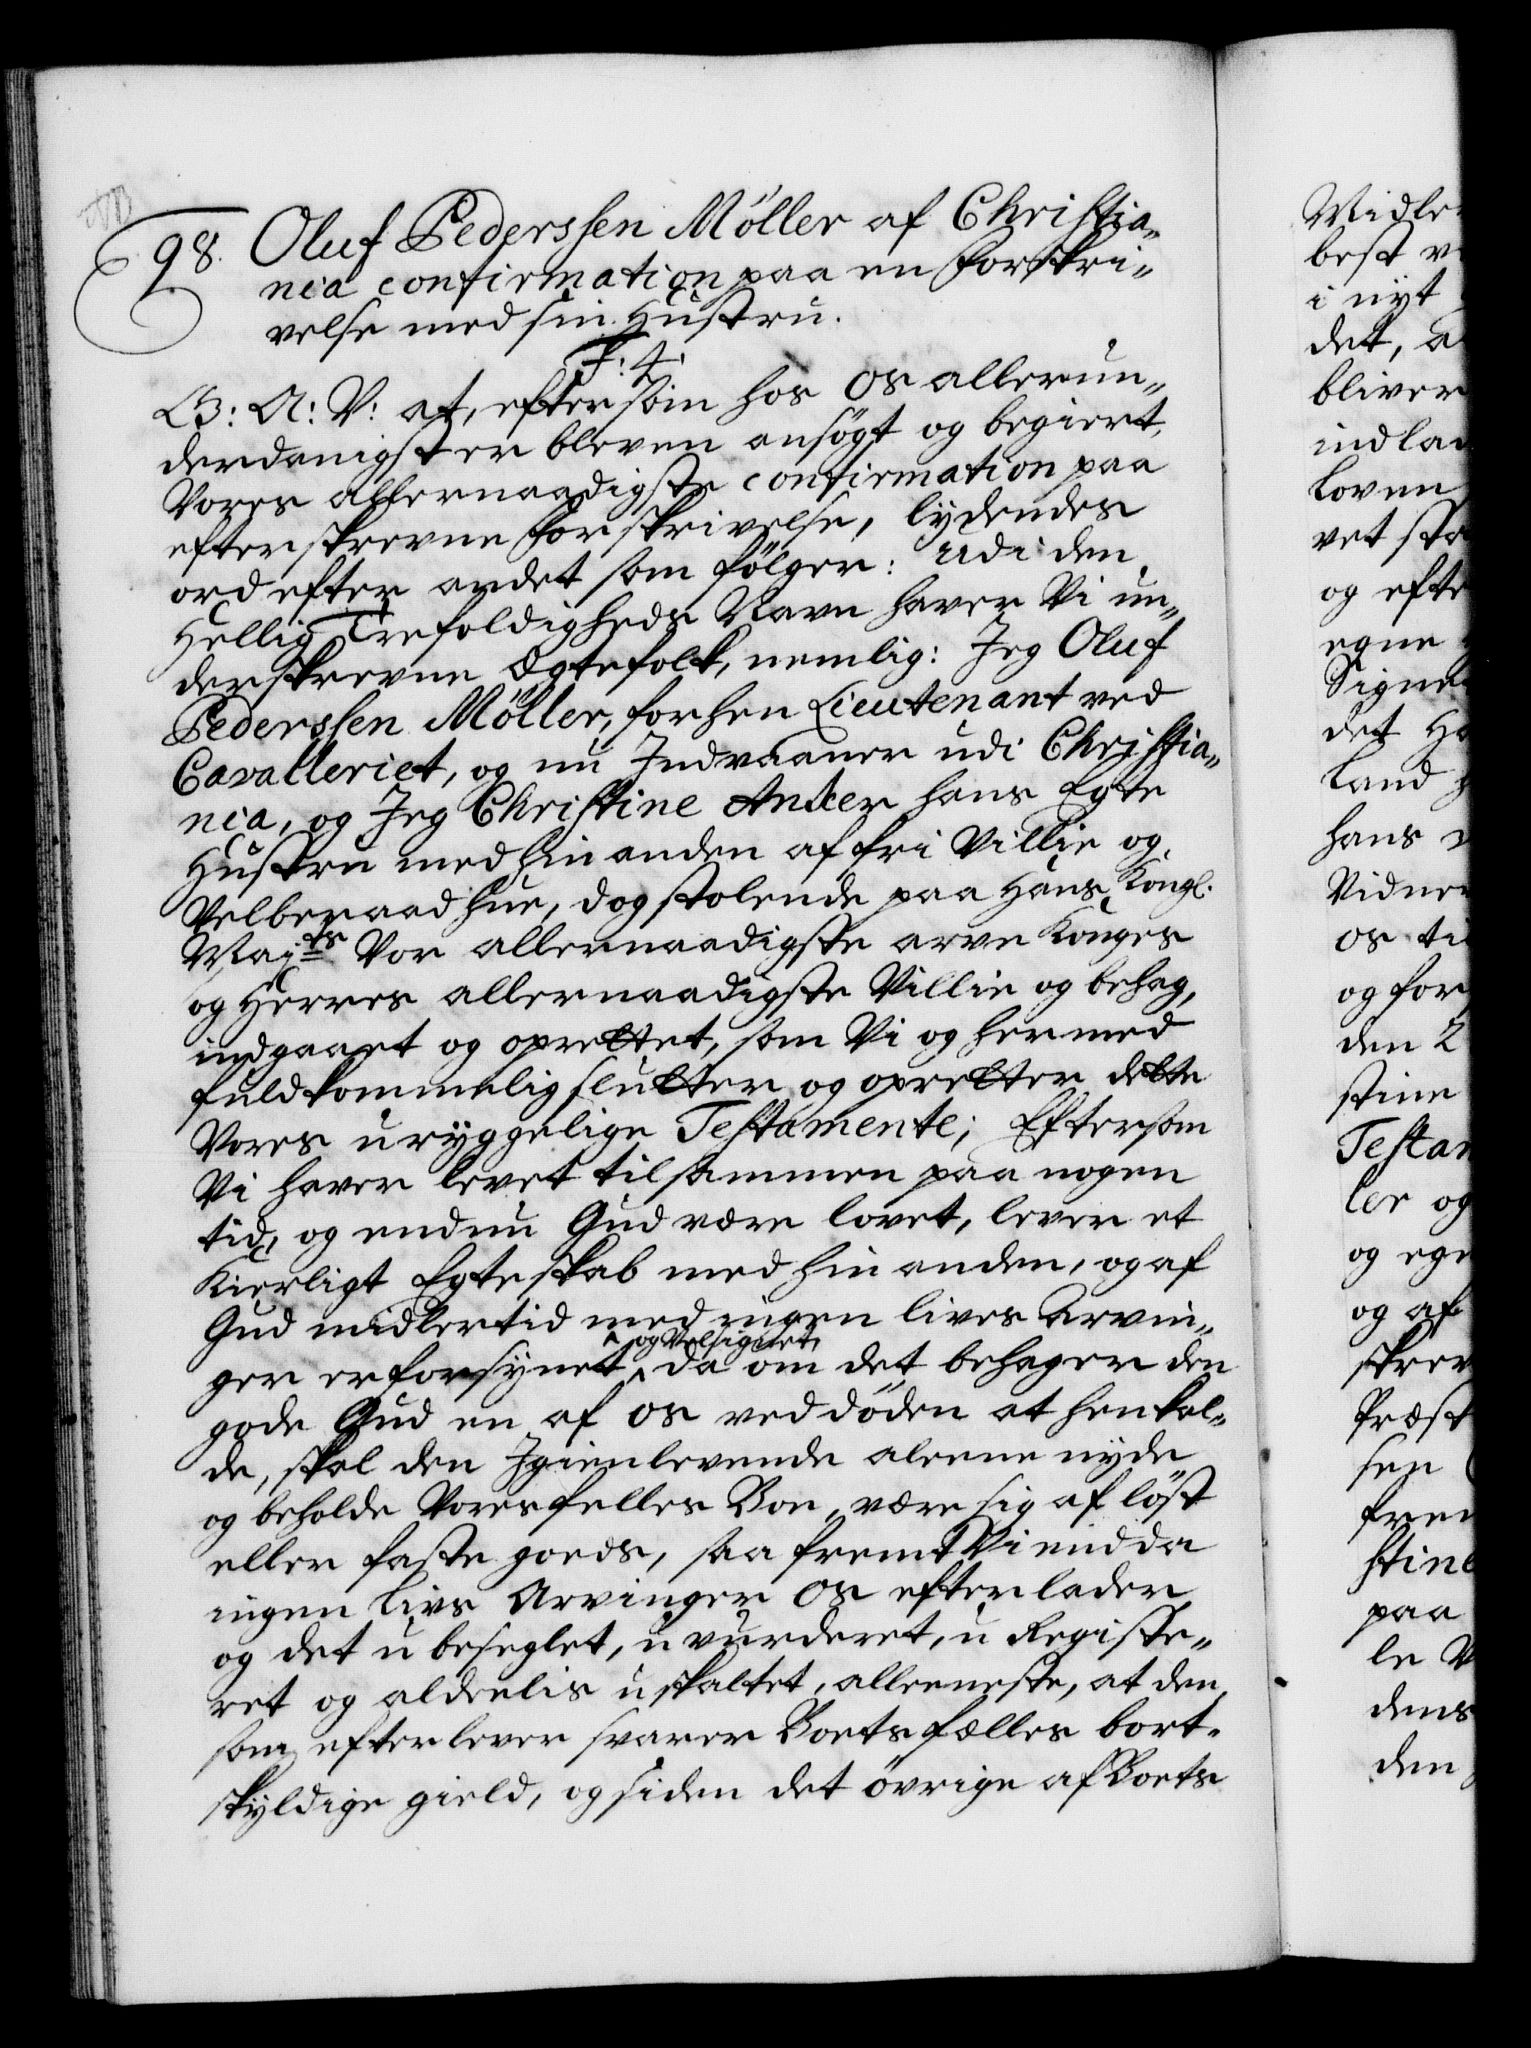 98. Oluf Pederssen Möller af Christia„
nia confirmation paa en forskri„
velse med sin Hustru.
F: 4.
G: A: V: at, eftersom hos Os allerun„
derdanigst er bleven ansögt og begiert,
Vores allernaadigste confirmation paa
efterskrevne forskrivelse, lydendes
ord efter andet som fölger: Udi den
Hellig Trefoldigheds Navn haver Vi un„
derskrevne Ægtefolk, nemlig: Jeg Oluf
Pederssen Möller, forhen Lieutenant ved
Cavalleriet, og nu Indvaaner udi Christia„
nia, og Jeg Christine Anker hans Egte
Hustru med hinanden af fri Villie og
Velberaad hue, dog stolende paa Hans Kongl.
Majts Vor allernaadigste arve Konges
og Herres allernaadigste Villie og behag,
indgaaet og oprettet, som Vi og hermed
fuldkommelig slutter og opretter dette
Vores uryggelige Testamente; Eftersom
Vi haver levet tilsammen paa nogen
tid, og endnu Gud være lovet, lever et
Kierligt Egteskab med hinanden, og af
Gud midlertid med ingen lives Arvin„
og Velsignet,
ger er forsynet da om det behager den
gode Gud en af os ved döden at henkal„
de, skal den Igienlevende aleene nyde
og beholde Vores felles Boe, være sig af löst
eller faste goeds, saa fremt Vi endda
ingen Livs Arvinger Os efterlader,
og det u beseglet, u vurderet, u Registe„
ret og aldeelis u skaltet, alleeneste, at den
som efterlever svarer Boets fælles bort„
skyldige gield, og siden det övrige af Boets
Midle
best v
i nyt
det, a
bliver
indla
Loven
vet sta
og efte
egne
Signe
det H
Land
hans
Vidne
os ti
og for
den 2
stine
Testam
ler og
og ege
og af
skrev
Præst
sen
frem
stine
paa
le V
dens
den